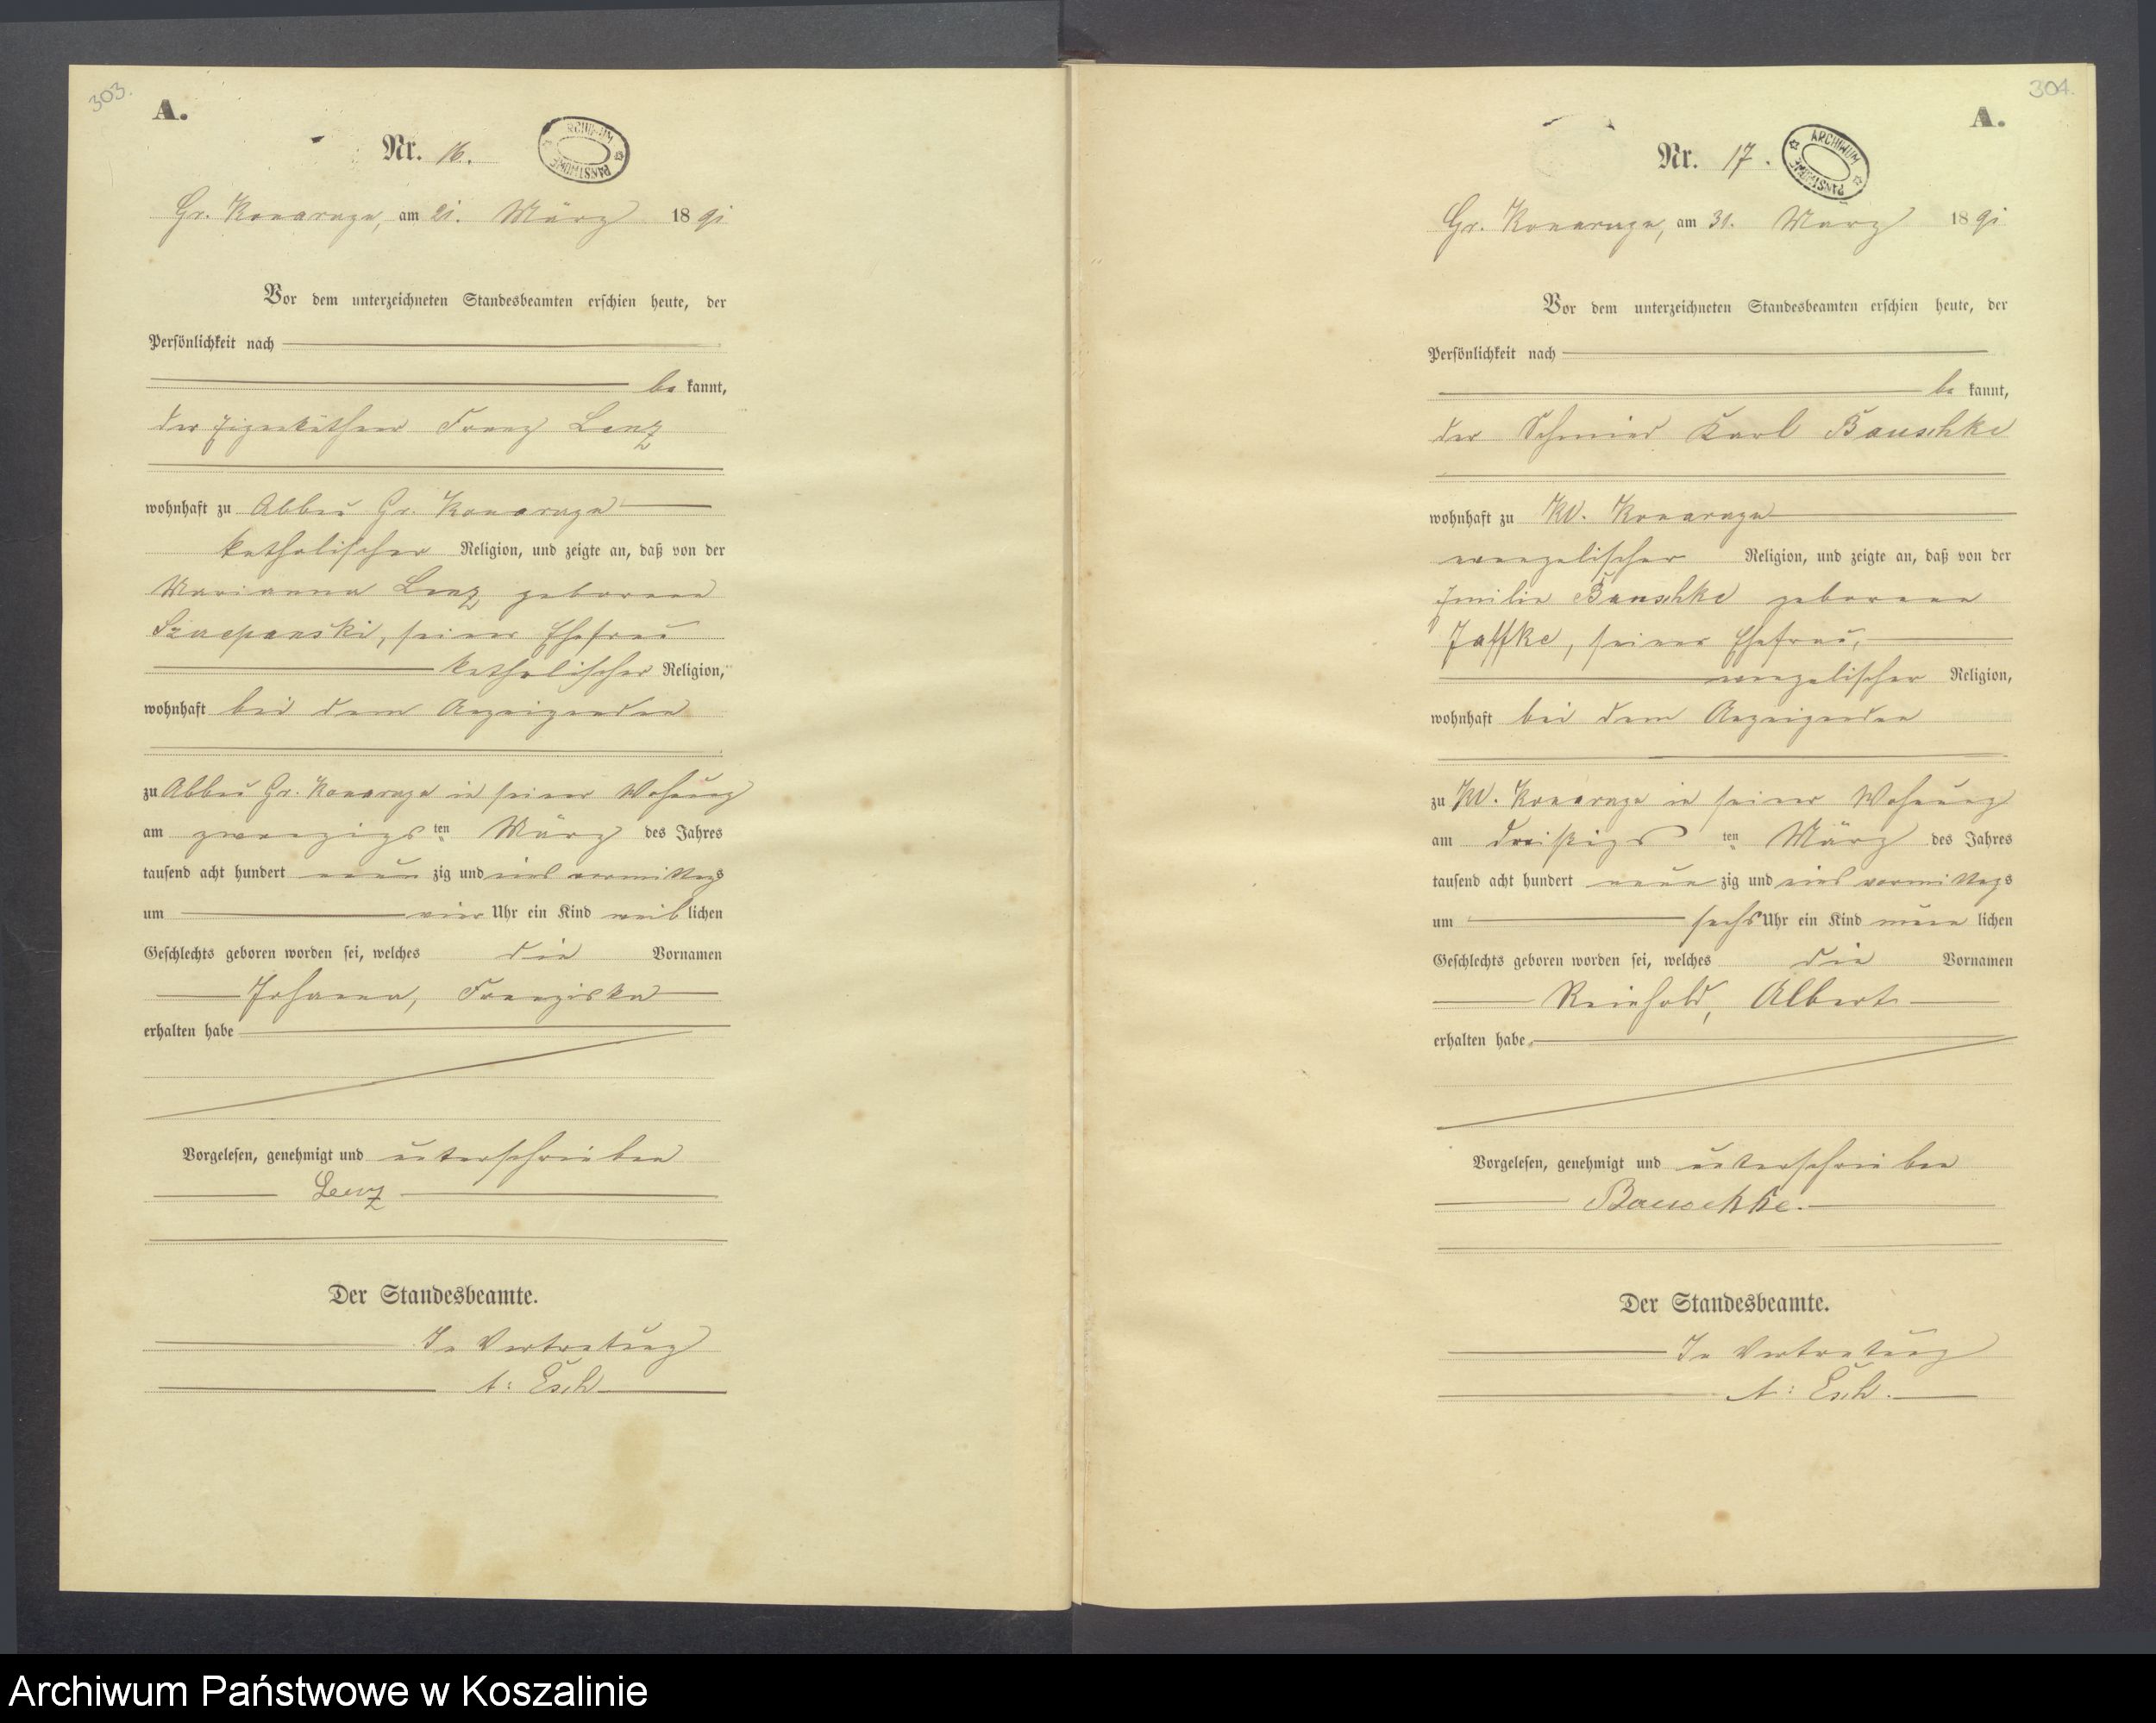 303.
A.
Nr. 16.
ARCHIWUM PAŃSTWOWE
Gr. Konarzyn, am 21. März 1891
Vor dem unterzeichneten Standesbeamten erschien heute, der
Persönlichkeit nach
be kannt,
der Eigenkäthner Franz Lenz
wohnhaft zu Abbau Gr. Konarzyn
katholischer Religion, und zeigte an, daß von der
Marianna Lenz geborene
Szczepanski, seiner Ehefrau
katholischer Religion,
wohnhaft bei dem Anzeigenden
zu Abbau Gr. Konarzyn in seiner Wohnung
am zwanzigsten März des Jahres
tausend acht hundert neunzig und eins vormittags
um vier Uhr ein Kind weiblichen
Geschlechts geboren worden sei, welches die Vornamen
Johanna, Franziska
erhalten habe
Vorgelesen, genehmigt und unterschrieben
Lenz
Der Standesbeamte.
In Vertretung
A: Esch
304.
A.
Nr. 17.
ARCHIWUM PAŃSTWOWE
Gr. Konarzyn, am 31. März 1891
Vor dem unterzeichneten Standesbeamten erschien heute, der
Persönlichkeit nach
be kannt,
der Schmied Karl Bauschke
wohnhaft zu Kl. Konarzyn
evangelischer Religion, und zeigte an, daß von der
Emilie Bauschke geborene
Jaffke, seiner Ehefrau,
evangelischer Religion,
wohnhaft bei dem Anzeigenden
zu Kl. Konarzyn in seiner Wohnung
am dreißigsten März des Jahres
tausend acht hundert neunzig und eins vormittags
um sechs Uhr ein Kind männlichen
Geschlechts geboren worden sei, welches die Vornamen
Reinhold, Albert
erhalten habe
Vorgelesen, genehmigt und unterschrieben
Bauschke.
Der Standesbeamte.
In Vertretung
A: Esch.
Archiwum Państwowe w Koszalinie